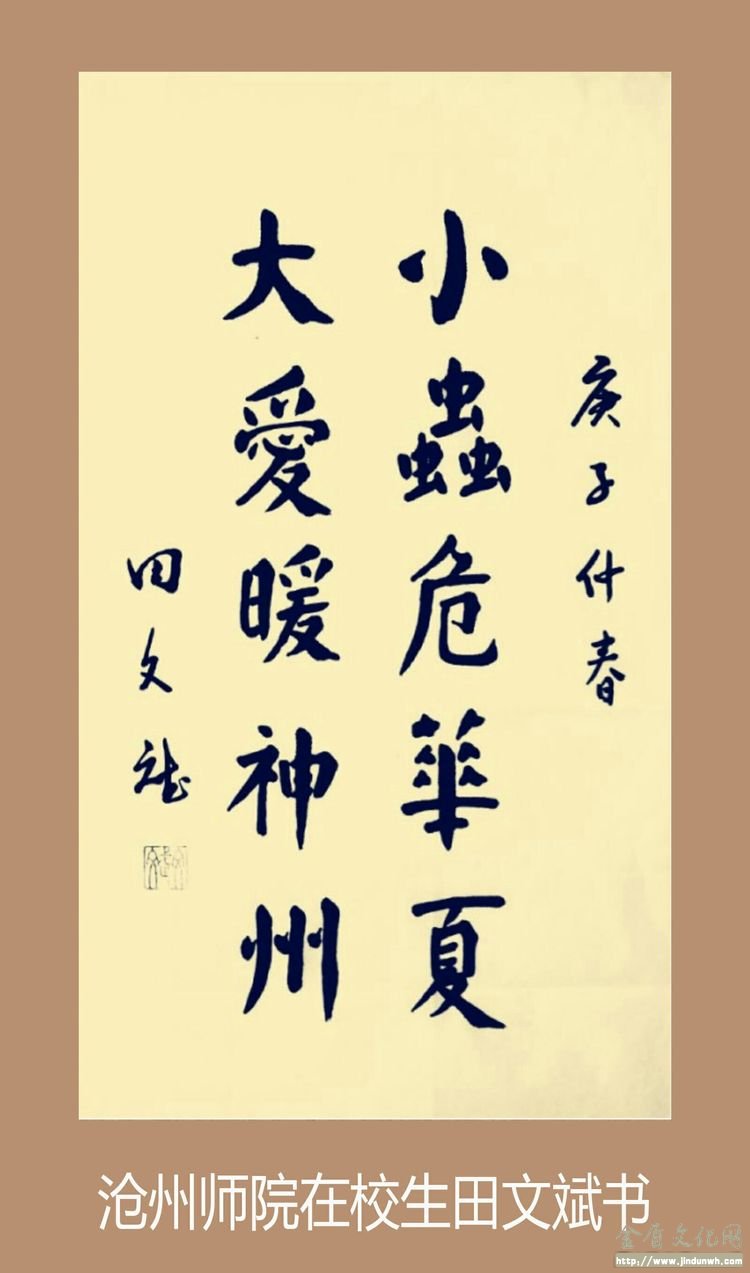 庚子仲春
小蟲危華夏
大愛暖神州
田文斌
沧州师院在校生田文斌书
金盾文化网
http://www.jindunwh.com